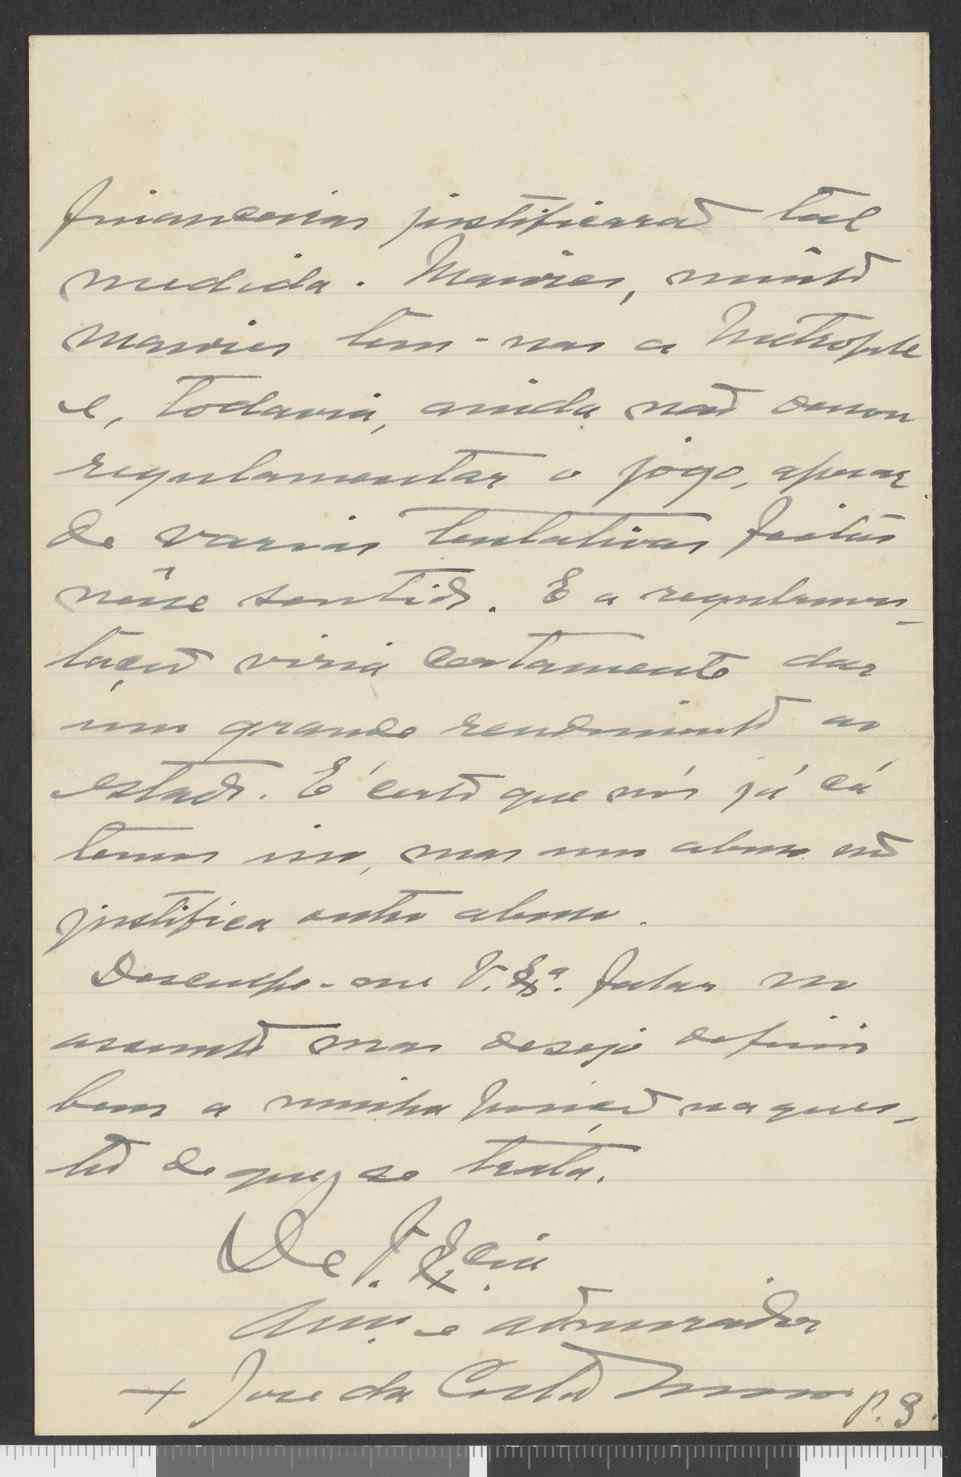 financeiras justificarad tal
medida. Maiores, muito
maiores tem-nas a Metropole
e, todavia, ainda não ousou
regulamentar o jogo, apesar
de varias tentativas feitas
nêsse sentido. E a regulamen-
tação viria certamente dar
um grande rendimento ao
estado. É certo que nós já cá
temos isso, mas um abuso não
justifica outro abuso.
Desculpe-me V. Exª. falar no
assunto mas desejo definir
bem a minha posição na ques-
tão de que se trata.
De V. Excia
Amº. e admirador
+ José da Costa Nunes
P. S.